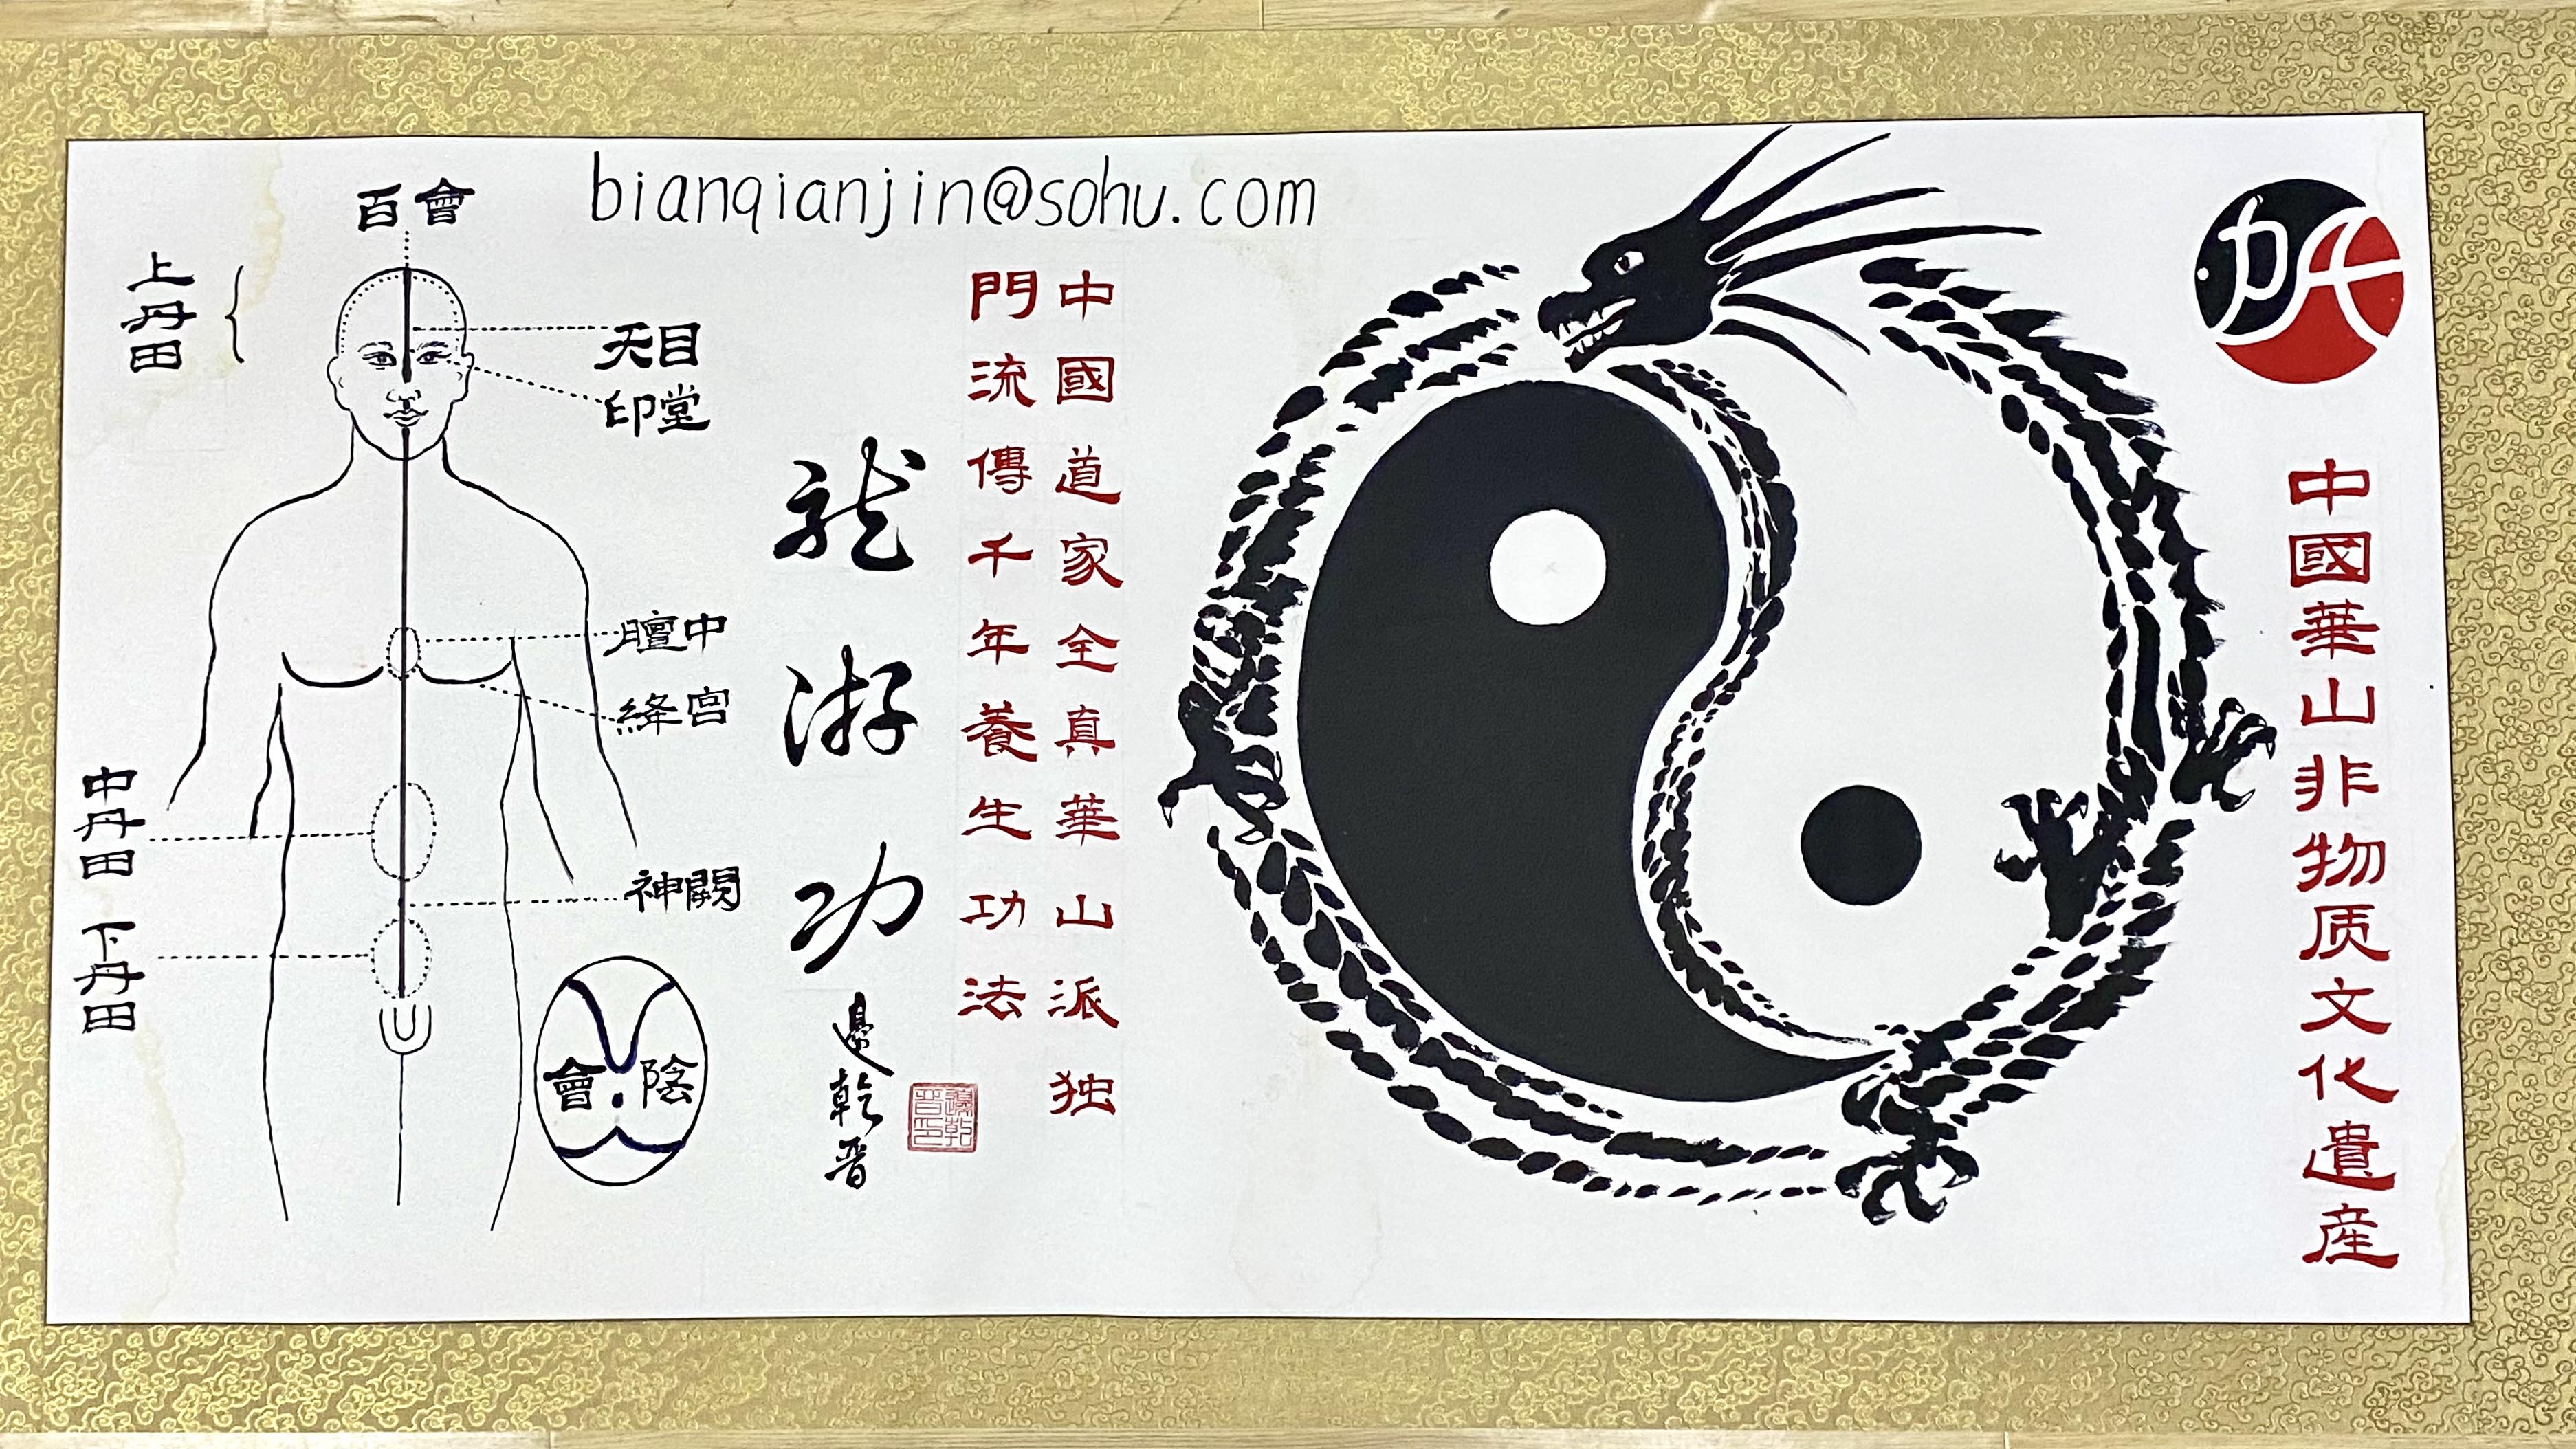 bianqianjin@sohu.com
百會
上丹田
天目
印堂
膻中
絳宮
中丹田
神闕
下丹田
會陰
龍游功
邊乾晋
中國道家全真華山派独
門流傳千年養生功法
中國華山非物质文化遺産